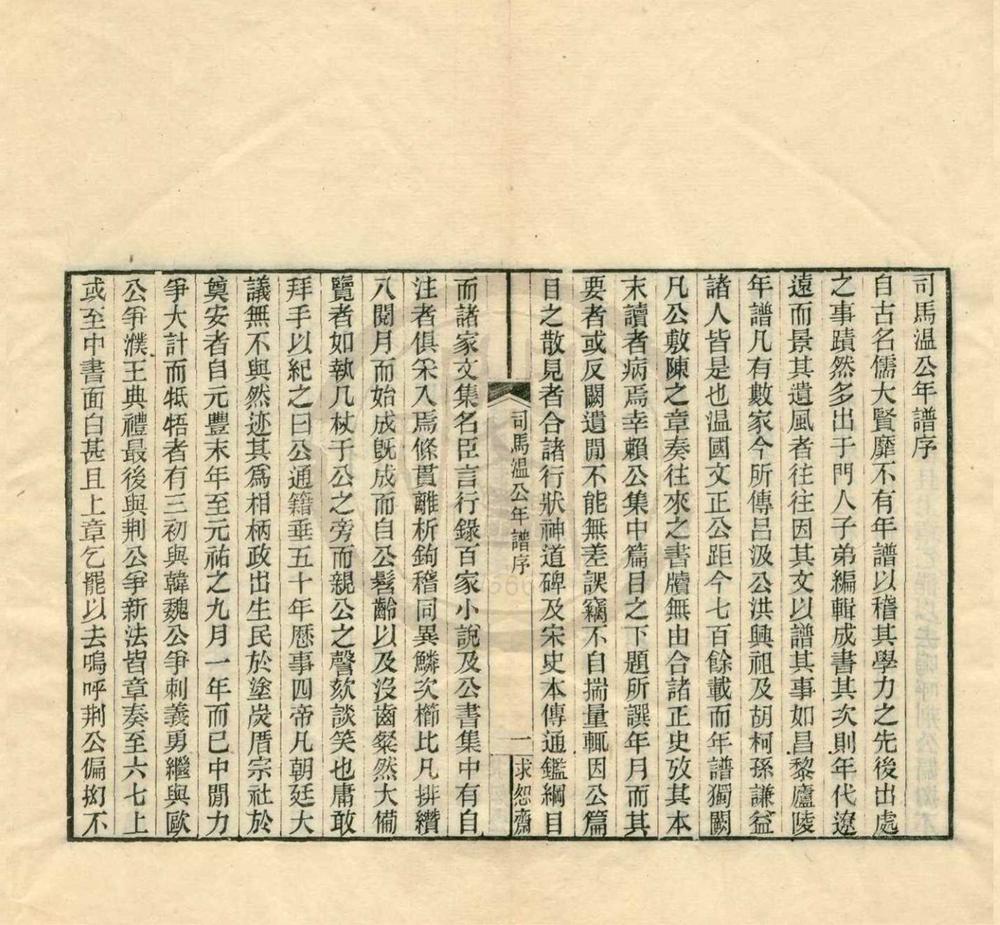 司馬溫公年譜序
自古名儒大賢靡不有年譜以稽其學力之先後出處
之事蹟然多出于門人子弟編輯成書其次則年代遼
遠而景其遺風者往往因其文以譜其事如昌黎廬陵
年譜凡有數家今所傳呂汲公洪興祖及胡柯孫謙益
諸人皆是也溫國文正公距今七百餘載而年譜獨闕
凡公敷陳之章奏往來之書牘無由合諸正史攷其本
末讀者病焉幸賴公集中篇目之下題所譔年月而其
要者或反闕遺閒不能無差誤竊不自揣量輒因公篇
目之散見者合諸行狀神道碑及宋史本傳通鑑綱目
司馬溫公年譜序
一
求恕齋
而諸家文集名臣言行錄百家小說及公書集中有自
注者俱罙入焉條貫離析鉤稽同異鱗次櫛比凡排纘
八閱月而始成旣成而自公髫齡以及沒齒粲然大備
覽者如執几杖于公之旁而親公之謦欬談笑也庸敢
拜手以紀之曰公通籍垂五十年歷事四帝凡朝廷大
議無不與然迹其爲相柄政出生民於塗炭厝宗社於
奠安者自元豐末年至元祐之九月一年而已中閒力
爭大計而牴牾者有三初與韓魏公爭刺義勇繼與歐
公爭濮王典禮最後與荆公爭新法皆章奏至六七上
或至中書面白甚且上章乞罷以去嗚呼荆公偏拗不